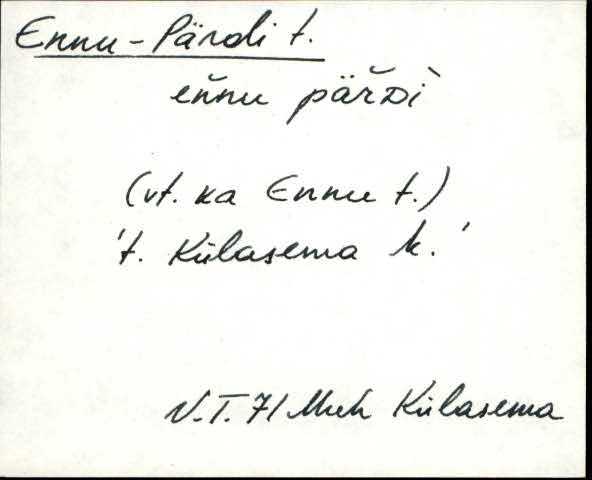 Ennu-Pärdi t.
eňnu päřᴅì
(vt. ka Ennu t.)
't. Külasema k.'
V.T. 71 Muh Külasema